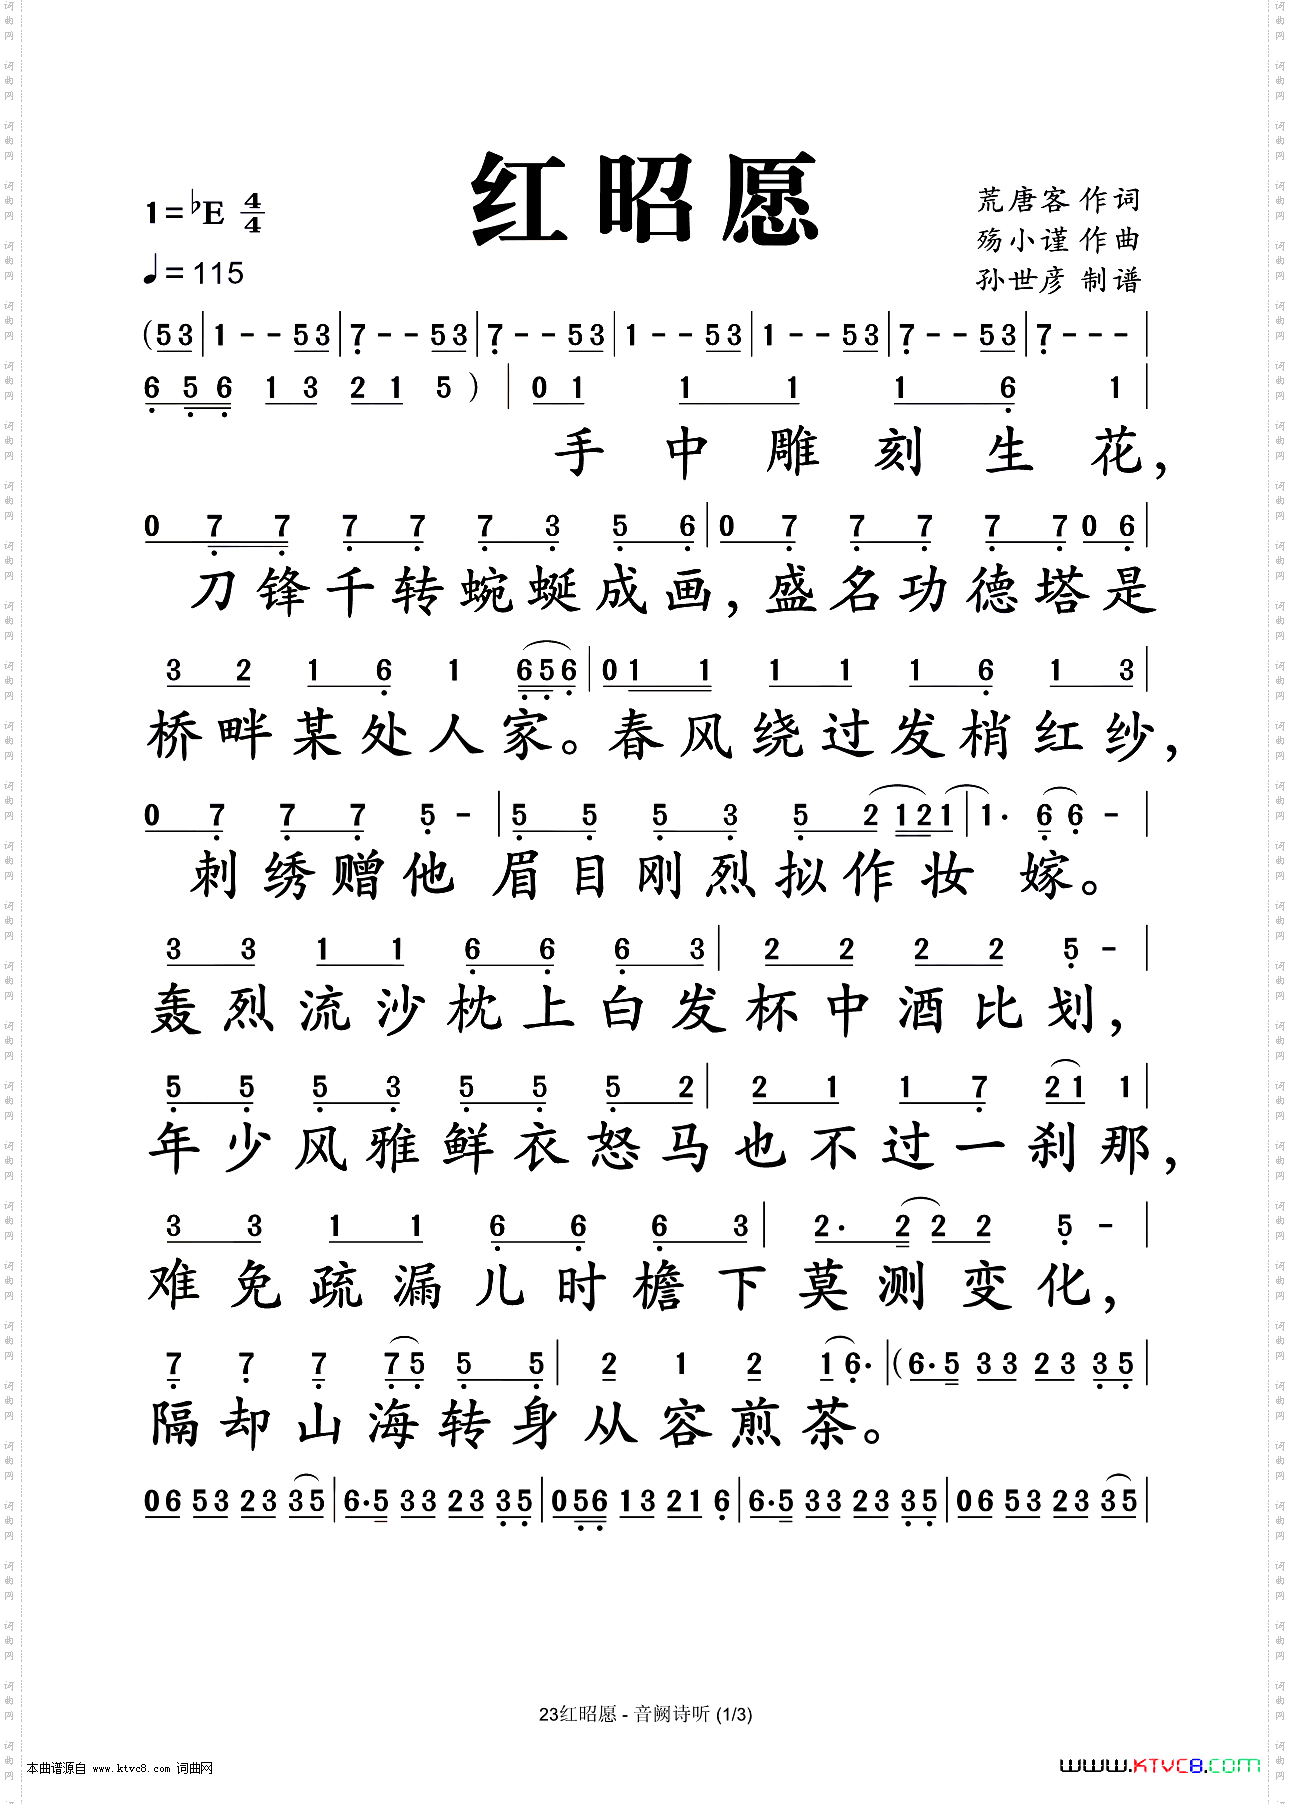 红昭愿
1=♭E 4/4
♩=115
荒唐客 作词
殇小谨 作曲
孙世彦 制谱
(53|1--53|7--53|7--53|1--53|1--53|7--53|7---|
656 13 21 5)|01 11 16 1|
手中雕刻生花，
077 77 73 56|07 77 77 06|
刀锋千转蜿蜒成画，盛名功德塔是
32 16 1 656|011 11 16 13|
桥畔某处人家。春风绕过发梢红纱，
07 77 5-|55 53 52121|1·66-|
刺绣赠他眉目刚烈拟作妆嫁。
33 11 66 63|22 22 5-|
轰烈流沙枕上白发杯中酒比划，
55 53 55 52|21 17 21 1|
年少风雅鲜衣怒马也不过一刹那，
33 11 66 63|2·222 5-|
难免疏漏儿时檐下莫测变化，
77 775 55|212 16·|(6·5 33 23 35|
隔却山海转身从容煎茶。
06 53 23 35|6·5 33 23 35|056 13 21 6|6·5 33 23 35|06 53 23 35|
23红昭愿 - 音阙诗听 (1/3)
本曲谱源自 www.ktvc8.com 词曲网
www.KTVC8.com
词曲网